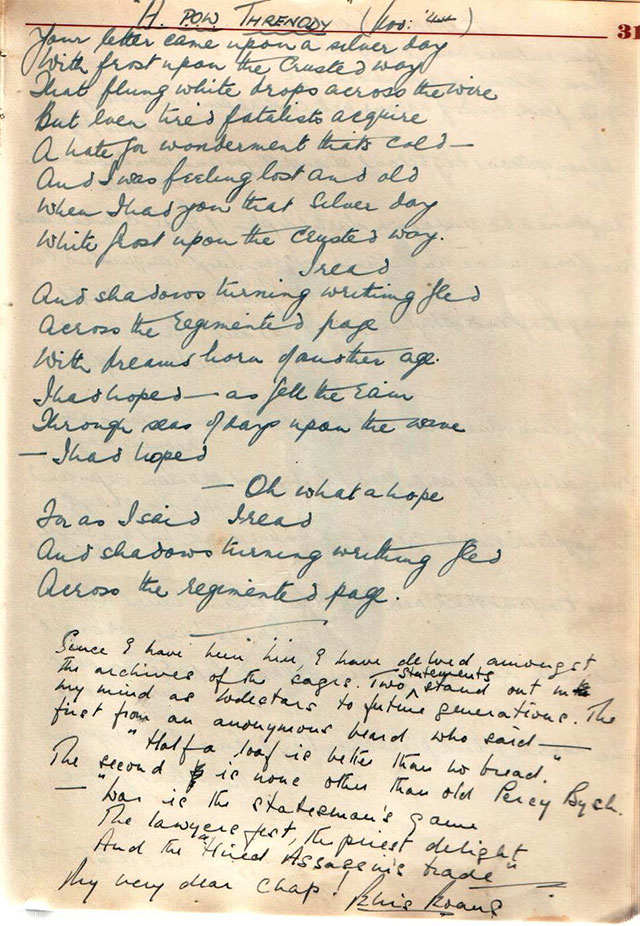 "A. POW THRENODY" (Nov: '44)
31
Your letter came upon a silver day
With frost upon the crusted way
That flung white drops across the wire
But even tired fatalists acquire
A hate for wonderment thats cold—
And I was feeling lost and old
When I had you that silver day
White frost upon the crusted way.
I read
And shadows turning writhing fled
Across the regimented page
With dreams born of another age.
I had hoped — as fell the rain
Through seas of days upon the
— I had hoped
— Oh what a hope
For as I said I read
And shadows turning writhing fled
Across the regimented page.
Since I have been here, I have delved amongst
the archives of the sages. Two statements stand out in
my mind as to future generations. The
first from an anonymous beard who said —
"Half a loaf is better than no bread."
The second is none other than old Percy Bysh.
— "War is the statesman's game
The lawyers jest, the priest delight
And the "Hired Assassin's trade"
My very dear chap!